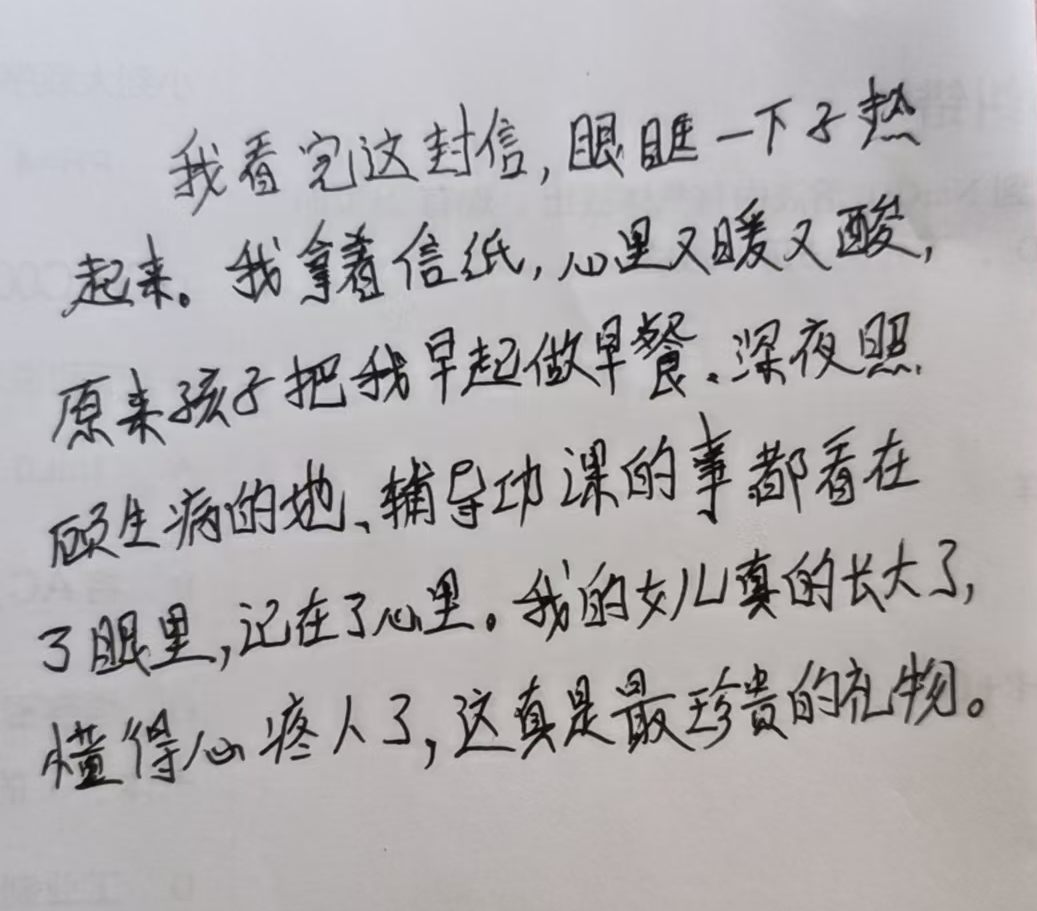 我看完这封信,眼眶一下子热
起来。我拿着信纸,心里又暖又酸,
原来孩子把我早起做早餐、深夜照
顾生病的她、辅导功课的事都看在
了眼里,记在了心里。我的女儿真的长大了,
懂得心疼人了,这真是最珍贵的礼物。